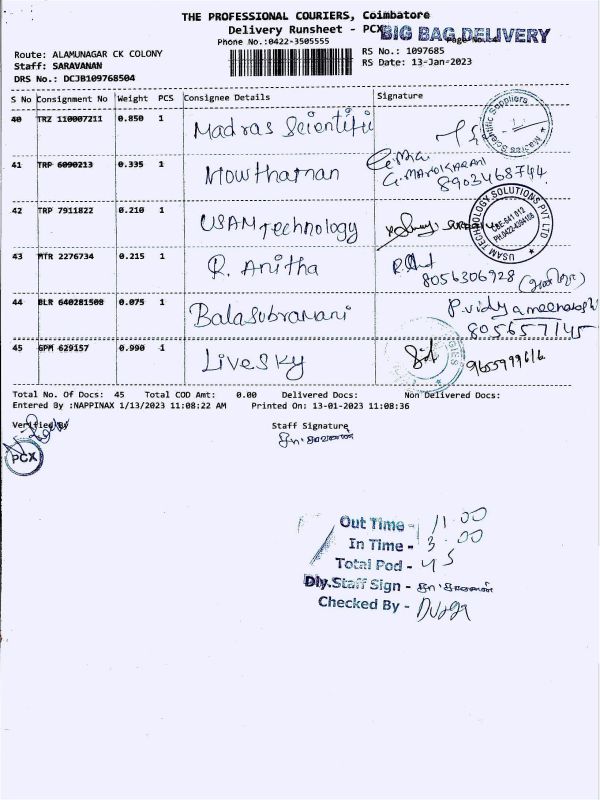 THE PROFESSIONAL COURIERS, Coimbatore
Delivery Runsheet - PCX BIG BAG DELIVERY
Phone No.:0422-3505555
Route: ALAMUNAGAR CK COLONY
RS No.: 1097685
Staff: SARAVANAN
RS Date: 13-Jan-2023
DRS No.: DCJB109768504
S No Consignment No Weight PCS Consignee Details Signature
40 TRZ 110007211 0.850 1 Madras Scientific
41 TRP 6090213 0.335 1 Mowthaman G. MANOKARAN 8903468744
42 TRP 7911822 0.210 1 USAM Technology
USAM TECHNOLOGY SOLUTIONS PVT LTD
43 MTR 2276734 0.215 1 R. Anitha 8056306928
44 BLR 640281508 0.075 1 Balasubramani P. vidya
45 GPM 629157 0.990 1 LiveSky
Total No. Of Docs: 45 Total COD Amt: 0.00 Delivered Docs: Non Delivered Docs:
Entered By :NAPPINAX 1/13/2023 11:08:22 AM Printed On: 13-01-2023 11:08:36
Verified By Staff Signature
PCX
Out Time - 11.00
In Time - 3.00
Total Pod - 45
Dly.Staff Sign -
Checked By - Durga